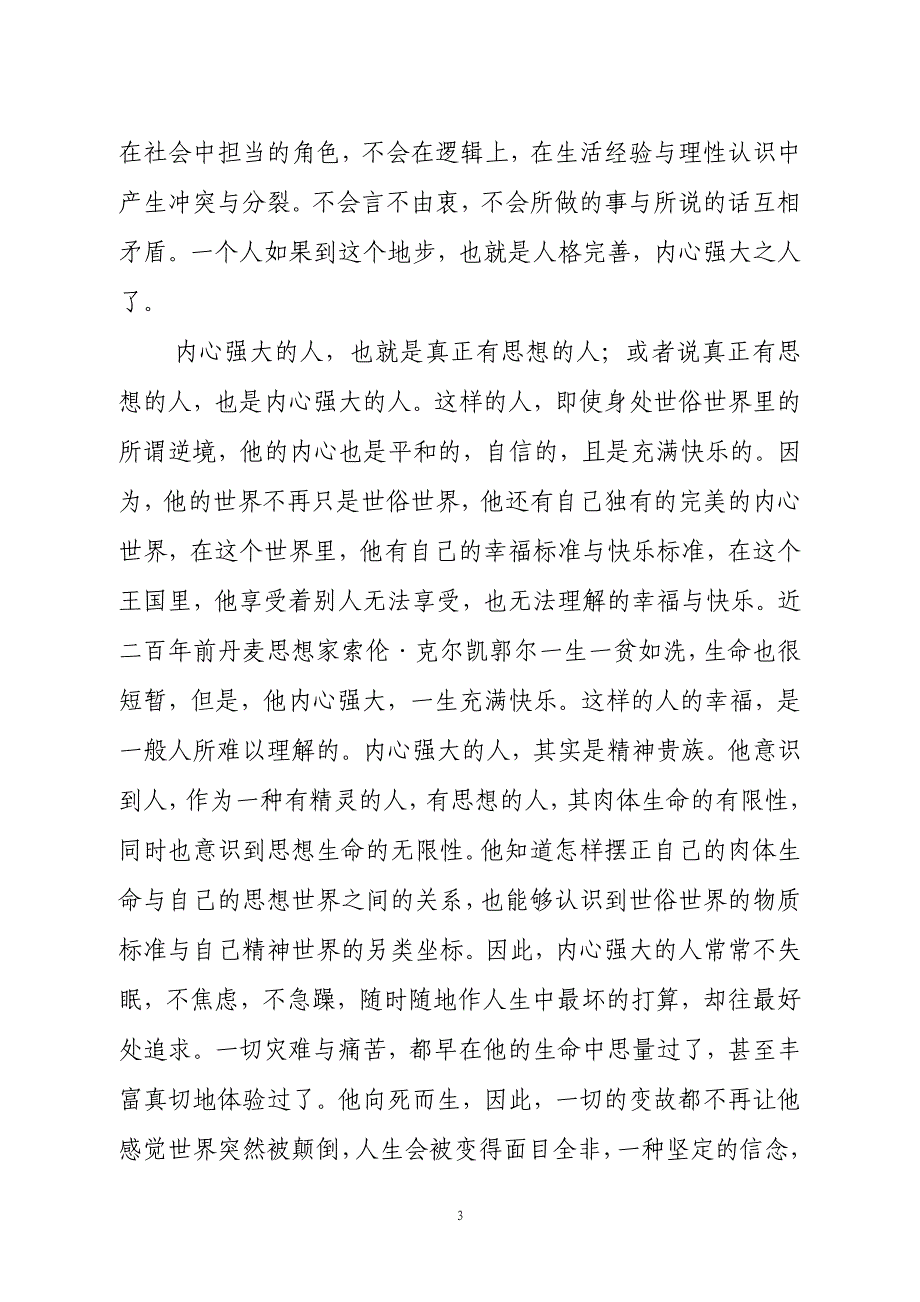 在社会中担当的角色，不会在逻辑上，在生活经验与理性认识中
产生冲突与分裂。不会言不由衷，不会所做的事与所说的话互相
矛盾。一个人如果到这个地步，也就是人格完善，内心强大之人
了。
内心强大的人，也就是真正有思想的人；或者说真正有思
想的人，也是内心强大的人。这样的人，即使身处世俗世界里的
所谓逆境，他的内心也是平和的，自信的，且是充满快乐的。因
为，他的世界不再只是世俗世界，他还有自己独有的完美的内心
世界，在这个世界里，他有自己的幸福标准与快乐标准，在这个
王国里，他享受着别人无法享受，也无法理解的幸福与快乐。近
二百年前丹麦思想家索伦·克尔凯郭尔一生一贫如洗，生命也很
短暂，但是，他内心强大，一生充满快乐。这样的人的幸福，是
一般人所难以理解的。内心强大的人，其实是精神贵族。他意识
到人，作为一种有精灵的人，有思想的人，其肉体生命的有限性，
同时也意识到思想生命的无限性。他知道怎样摆正自己的肉体生
命与自己的思想世界之间的关系，也能够认识到世俗世界的物质
标准与自己精神世界的另类坐标。因此，内心强大的人常常不失
眠，不焦虑，不急躁，随时随地作人生中最坏的打算，却往最好
处追求。一切灾难与痛苦，都早在他的生命中思量过了，甚至丰
富真切地体验过了。他向死而生，因此，一切的变故都不再让他
感觉世界突然被颠倒，人生会被变得面目全非，一种坚定的信念，
3